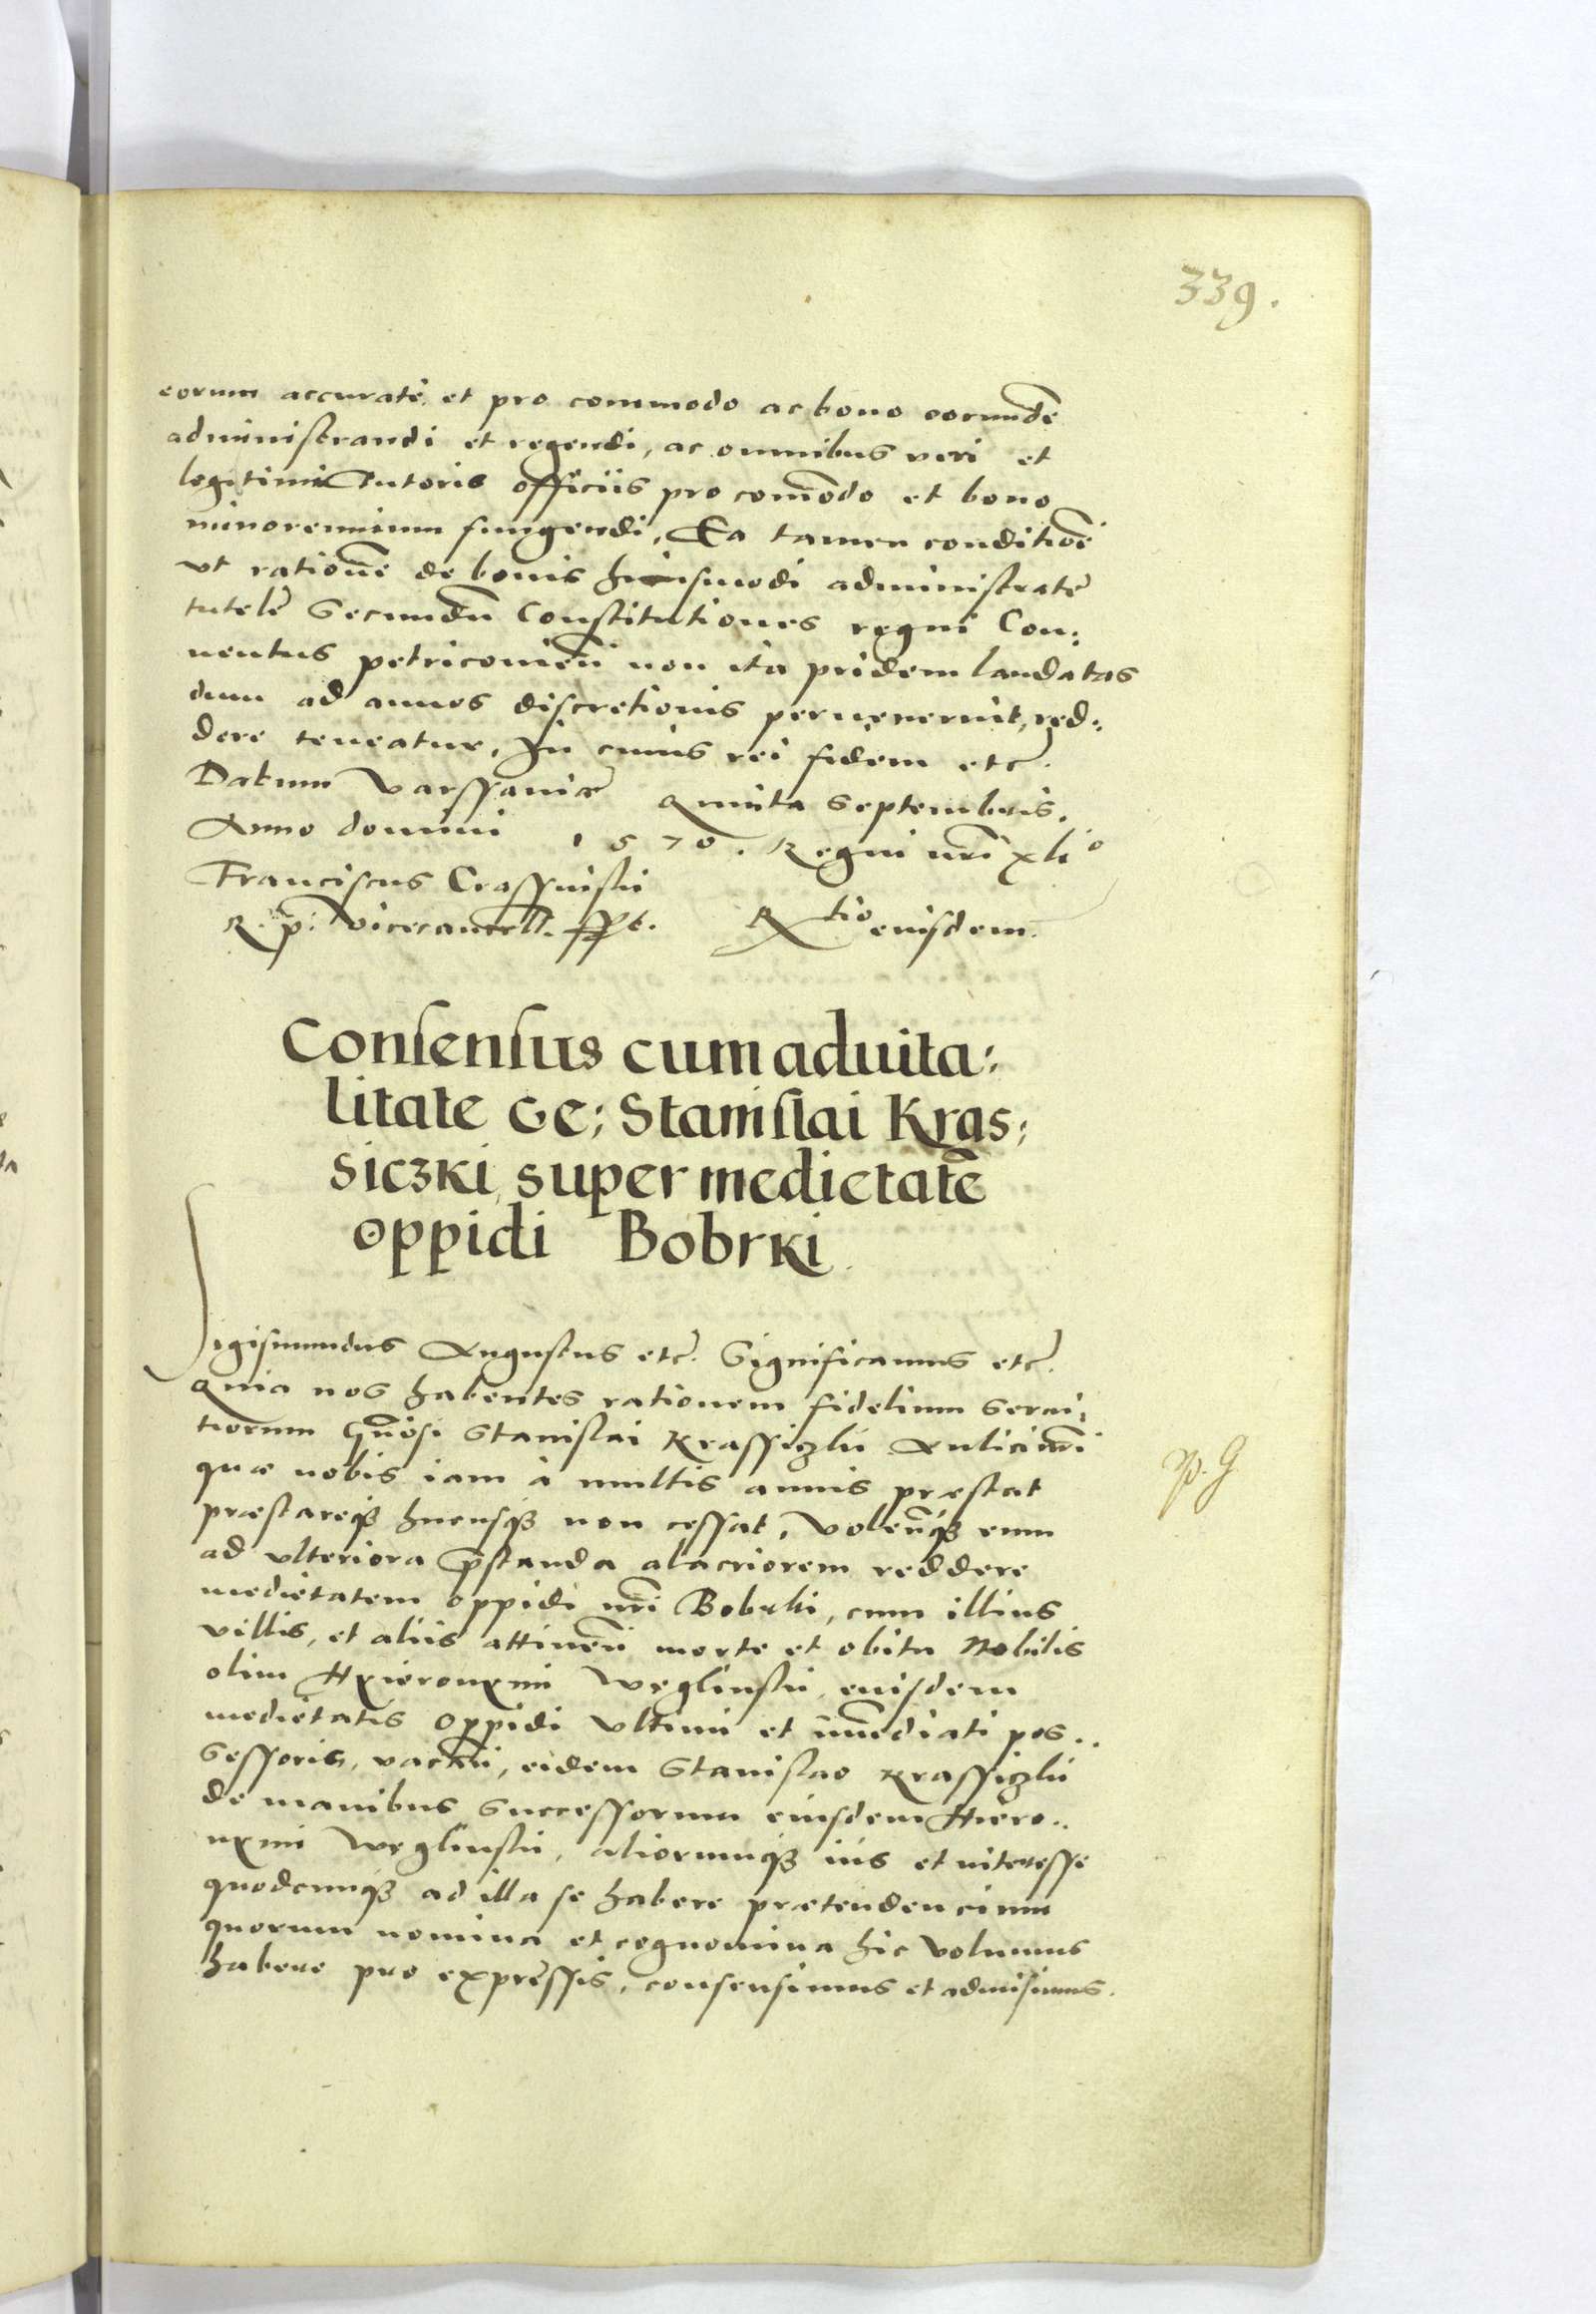 339.
eorum accurate et pro commodo ac bono eorundē
administrandi et regendi, ac omnibus veri et
legitimi Tutoris officiis pro com̄odo et bono
minorennium fungendi, Ea tamen conditiōe
vt rationē de bonis huiusmodi administrate
tutele Secundū Constitutiones regni Con:
uentus petricouień non ita pridem laudatas
dum ad annos discretionis peruenerint, red:
dere teneatur, In cuius rei fidem etc.
Datum Varssauiæ Quinta Septembris.
Anno domini 1570. Regni nr̄i xli°
Franciscus Crassinski
R. p. Vicecancell. sspt. Rtio eiusdem.
Consensus cum aduita:
litate Ge: Stanislai Kras:
siczki super medietatē
oppidi Bobrki
Sigismundus Augustus etc. Significamus etc.
Quia nos habentes rationem fidelium Serui:
tiorum Gn̄osi Stanislai Krassiczki Aulici nr̄i
quæ nobis iam à multis annis præstat
præstareq3 hucusq3 non cessat, Volen̄q3 eum
ad vlteriora p̄standa alacriorem reddere
medietatem oppidi nr̄i Bobrki, cum illius
villis, et aliis attinen̄ morte et obitu Nobilis
olim Hieronymi Weglinski, euisdem
medietatis oppidi vltimi et im̄ediati pos..
sessoris, vacań, eidem Stanislao Krassiczki
de manibus Successorum eiusdem Hiero..
nymi Weglinski, aliorumq3 iús et interesse
quodcunq3 ad illa se habere prætendencium
quorum nomina et cognomina hic volumus
habere pro expressis, consensimus et admisimus.
p. G